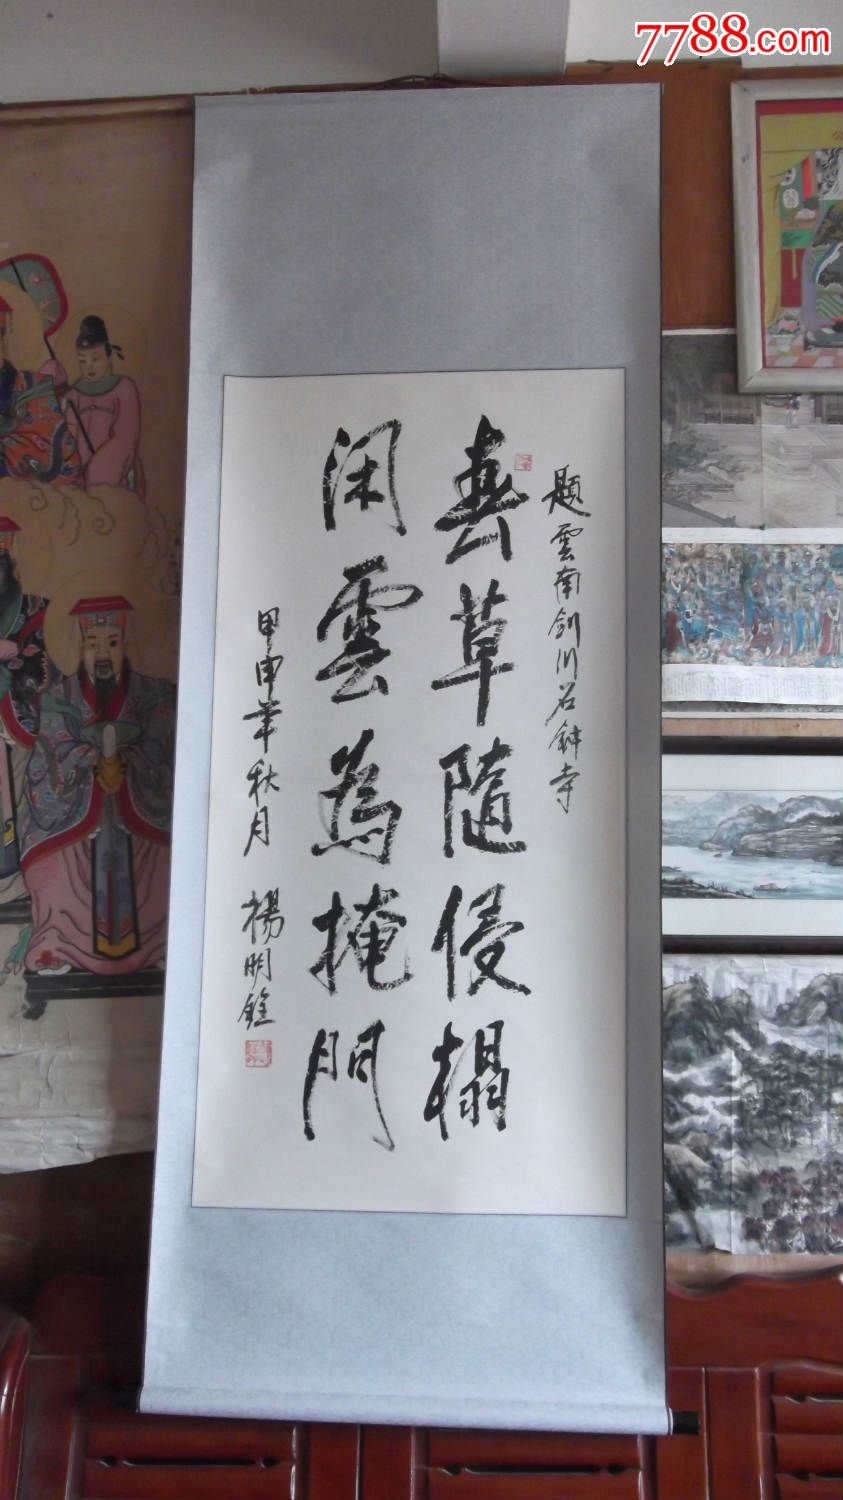 7788.com
題雲南劍川石鐘寺
春草隨侵榻
闲雲為掩門
甲申年秋月
楊明銓